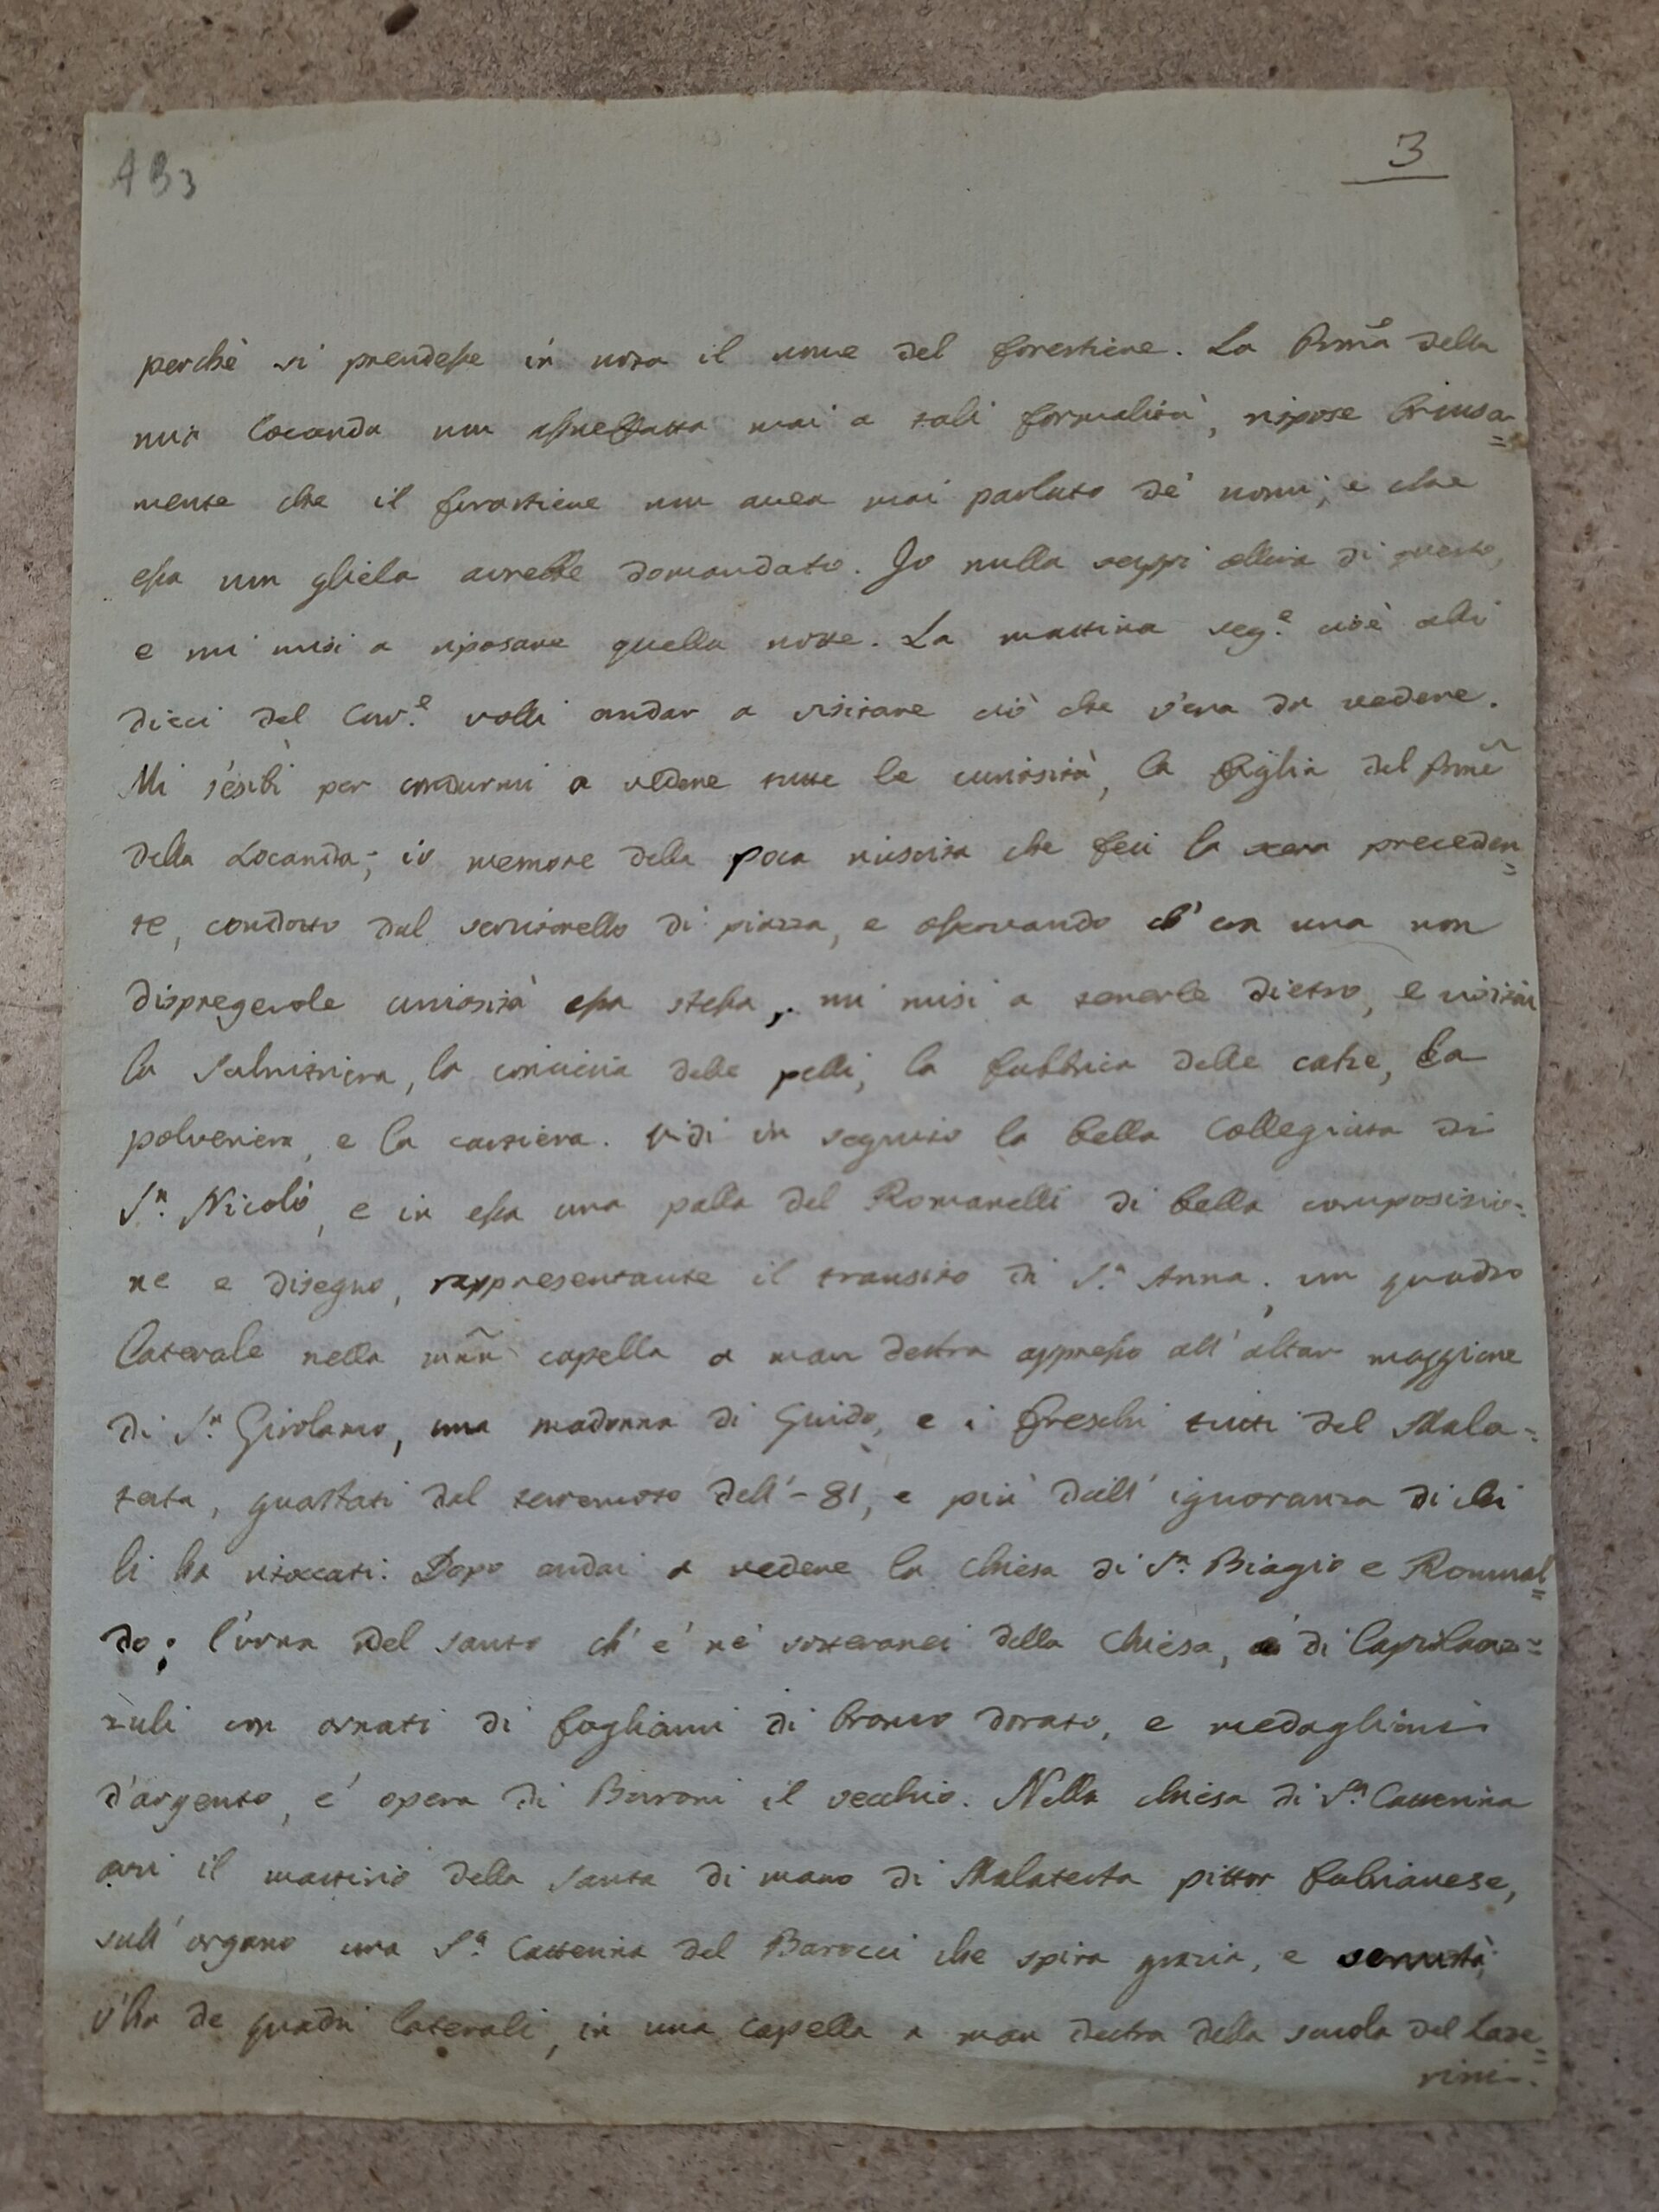 AB3
3
perchè si prendesse in nota il nome del forestiere. La Prnã della
mia Locanda non assuefatta mai a tali formalità, rispose briusa=
mente che il forastiere non avea mai parlato de' nomi; e che
essa non gliela avrebbe domandato. Io nulla seppi allora di questo,
e mi misi a riposare quella notte. La mattina seg.e cioè alli
dieci del Corr.e volli andar a visitare ciò che v'era da vedere.
Mi s'esibì per condurmi a vedere tutte le curiosità, la figlia del Prnẽ
della Locanda; io memore della poca riuscita che feci la sera preceden=
te, condotto dal servitorello di piazza, e osservando ch'era una non
dispregevole curiosità essa stessa, mi misi a tenerle dietro, e visitai
la Salnitriera, la conciaria delle pelli, la fabbrica delle calze, la
polveriera, e la cartiera. Vidi in seguito la bella Collegiata di
S.n Nicolò, e in essa una palla del Romanelli di bella composizio=
ne e disegno, rappresentante il transito di S.a Anna; un quadro
laterale nella capella a man destra appresso all'altar maggiore
di S.n Girolamo, una madonna di Guido, e i freschi tutti del Mala=
testa, guastati dal terremoto dell'-81, e più dall'ignoranza di chi
li ha ritoccati. Dopo andai a vedere la Chiesa di S.n Biagio e Romual=
do; l'urna del santo ch'e' ne' sotteranei della Chiesa, è di Lapislaz=
zuli con ornati di fogliami di bronzo dorato, e medaglioni
d'argento, e' opera di Baroni il vecchio. Nella chiesa di S.a Catterina
avvi il martirio della santa di mano di Malatesta pittor fabrianese,
sull'organo una S.a Catterina del Barocci che spira grazia, e venustà;
v'ha de quadri laterali, in una capella a man destra della scuola del Laze=
rini.